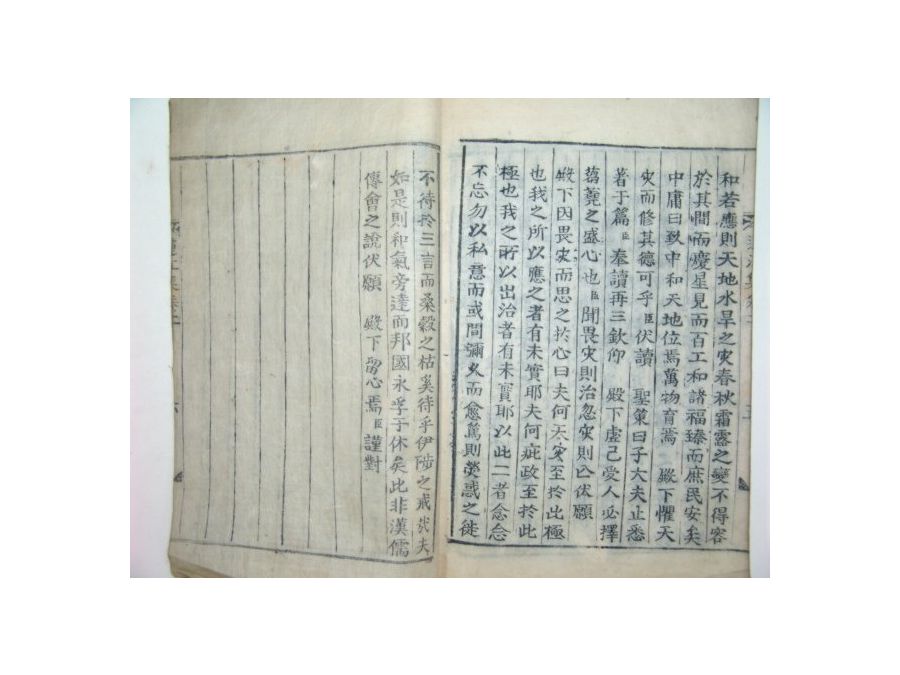 和若應則天地水旱之灾春秋霜露之變不得容
於其間而慶星見而百工和諸福臻而庶民安矣
中庸曰致中和天地位焉萬物育焉 殿下懼天
灾而修其德可乎臣伏讀 聖策曰子大夫止悉
著于篇臣奉讀再三欽仰 殿下虛己受人必擇
蒭蕘之盛心也臣聞畏灾則治忽灾則凶伏願
殿下因畏灾而思之於心曰夫何天灾至於此極
也我之所以應之者有未實耶夫何疵政至於此
極也我之所以出治者有未實耶以此二者念念
不忘勿以私意而或間彌久而愈篤則熒惑之徙
不待於三言而桑穀之枯奚待乎伊陟之戒哉夫
如是則和氣旁達而邦國永孚于休矣此非漢儒
傅會之說伏願 殿下留心焉臣謹對